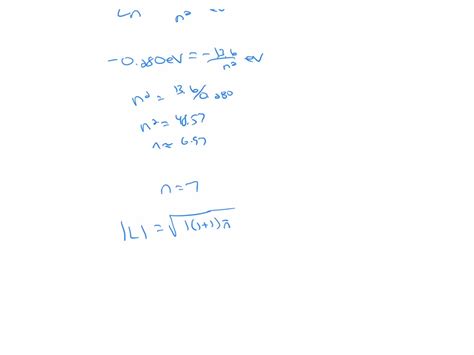 n² eV
-0.280eV = -13.6/n² eV
n² = 13.6/0.280
n² = 48.57
n ≈ 6.97
n = 7
|L| = √l(l+1) ħ